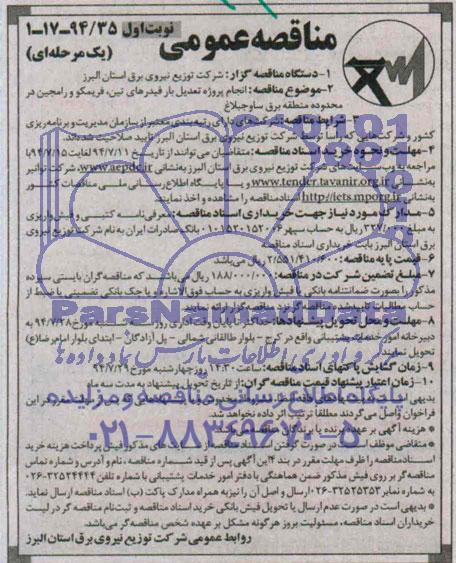 مناقصه عمومی
نوبت اول ۹۴/۳۵-۱۷-۱
(یک مرحله ای)
۱-دستگاه مناقصه گزار: شرکت توزیع نیروی برق استان البرز
۲-موضوع مناقصه: انجام پروژه تعدیل بار فیدرهای تین، فریمکو و رامجین در
محدوده منطقه برق ساوجبلاغ
۳- شرایط مناقصه: شرکت‌های دارای رتبه‌بندی معتبر از سازمان مدیریت و برنامه ریزی
کشور و شرکت‌هایی که توسط شرکت توزیع نیروی برق استان البرز تایید صلاحیت شده‌اند.
۴-مهلت و نحوه خرید اسناد مناقصه: متقاضیان می توانند از تاریخ ۹۴/۷/۱۱ لغایت ۹۴/۷/۱۵ با
مراجعه به سایت‌های شرکت توزیع نیروی برق استان البرز به‌نشانی www.aepdc.ir، شرکت توانیر
به‌نشانی www.tender.tavanir.org.ir و پایگاه اطلاع رسانی ملی مناقصات کشور
به‌نشانی http://iets.mporg.ir اسناد مناقصه را مشاهده و اخذ نمایند.
۵-مدارک مورد نیاز جهت خریداری اسناد مناقصه: معرفی‌نامه کتبی و فیش واریزی
به مبلغ ریال به حساب ۰۱۰۱۵۲۰۱۵۲۰۰۶ بانک صادرات ایران به نام شرکت توزیع نیروی
برق استان البرز بابت خریداری اسناد مناقصه
۶-قیمت پایه مناقصه: ۲/۵۵۱/۴۱۰/۶۰۰ ریال می‌باشد
۷-مبلغ تضمین شرکت در مناقصه: ۱۸۸/۰۰۰/۰۰۰ ریال می‌باشد که مناقصه‌گران بایستی سپرده
مذکور را بصورت ضمانتنامه بانکی یا فیش واریزی به حساب فوق‌الاشاره یا چک بانکی تضمینی یا ضبط از
حساب مطالبات تایید شده مناقصه‌گر نزد مناقصه‌گزار ارائه نمایند.
۸-مهلت و محل تحویل پیشنهادها: حداکثر تا پایان وقت اداری روز سه شنبه مورخ ۹۴/۷/۲۸ به
دبیرخانه امور خدمات پشتیبانی واقع در کرج - بلوار طالقانی شمالی - پل آزادگان - ابتدای بلوار امامرضا(ع)
تحویل نمایند.
۹-زمان گشایش پاکتهای اسناد مناقصه: ساعت ۱۴:۳۰ روز چهارشنبه مورخ ۹۴/۷/۲۹
۱۰-زمان اعتبار پیشنهاد قیمت مناقصه گران: از تاریخ تحویل پیشنهاد به مدت سه ماه
بدیهی است به پیشنهادهای
فراخوان واصل می‌گردند مطلقا ترتیب اثر داده نخواهد شد.
* هزینه آگهی بر عهده برنده یا برندگان مناقصه می‌باشد.
* متقاضی موظف است در صورت گرفتن اسناد مناقصه از سایت‌های مذکور فیش پرداخت هزینه خرید
اسناد مناقصه را ظرف مهلت مقرر در بند ۴ این آگهی پس از قید شماره مناقصه، نام و آدرس و شماره تماس
مناقصه گر بر روی فیش مذکور ضمن هماهنگی با دفتر امور خدمات پشتیبانی با شماره تلفن ۳۲۵۲۴۴۴۴-۰۲۶
به شماره نمابر ۳۲۵۲۵۳۵۳-۰۲۶ ارسال و اصل آن را نیز به همراه مدارک پاکت (ب) اسناد مناقصه ارسال نماید.
* بدیهی است در صورت عدم ارسال یا تحویل فیش بانکی خرید اسناد مناقصه و ثبت نام مناقصه گر در لیست
خریداران اسناد مناقصه، مسئولیت بروز هرگونه مشکل بر عهده شخص مناقصه‌گر می‌باشد.
روابط عمومی شرکت توزیع نیروی برق استان البرز
ParsNamadData
گردآوری اطلاعات پارس نماد داده ها
پایگاه اطلاع رسانی مناقصه و مزایده
۰۲۱-۸۸۳۴۹۶۷۰-۵